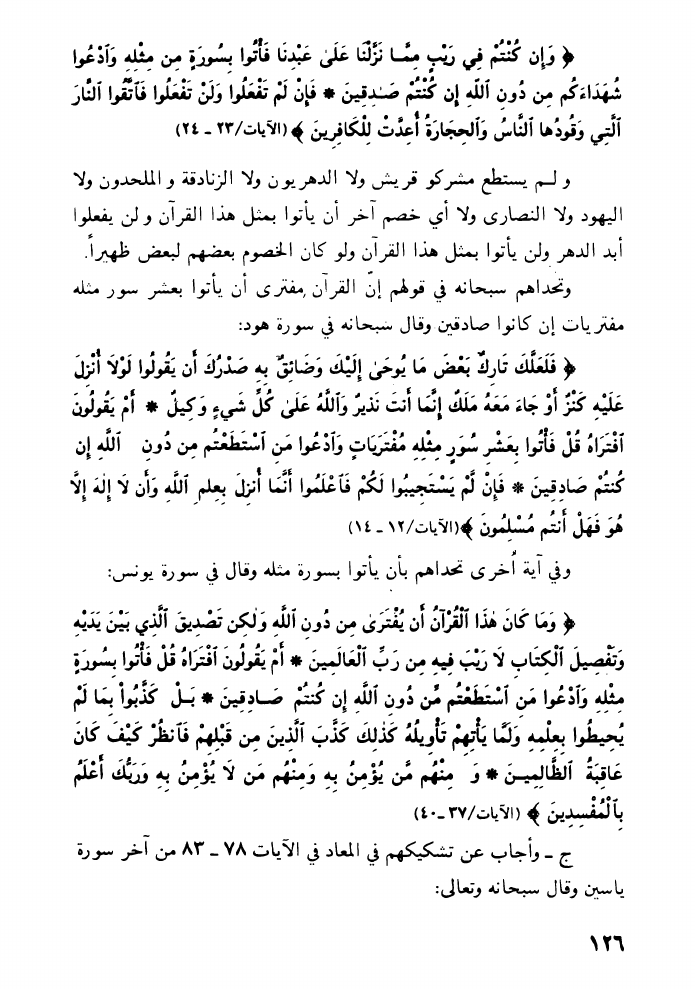 ﴿ وَإِن كُنْتُمْ فِي رَيْبٍ مِمَّا نَزَّلْنَا عَلَىٰ عَبْدِنَا فَأْتُوا بِسُورَةٍ مِن مِثْلِهِ وَٱدْعُوا
شُهَدَاءَكُم مِن دُونِ ٱللّٰهِ إِن كُنْتُمْ صَـٰدِقِينَ * فَإِنْ لَمْ تَفْعَلُوا وَلَنْ تَفْعَلُوا فَٱتَّقُوا ٱلنَّارَ
ٱلَّتِي وَقُودُها ٱلنَّاسُ وَٱلحِجَارَةُ أُعِدَّتْ لِلْكَافِرِينَ ﴾ (الآيات/٢٣ ـ ٢٤)
و لـم يستطع مشركو قريش ولا الدهريون ولا الزنادقة و الملحدون ولا
اليهود ولا النصارى ولا أي خصم آخر أن يأتوا بمثل هذا القرآن و لن يفعلوا
أبد الدهر ولن يأتوا بمثل هذا القرآن ولو كان الخصوم بعضهم لبعض ظهيراً.
وتحداهم سبحانه في قولهم إنّ القرآن مفترى أن يأتوا بعشر سور مثله
مفتريات إن كانوا صادقين وقال سبحانه في سورة هود:
﴿ فَلَعَلَّكَ تَارِكٌ بَعْضَ مَا يُوحَىٰ إِلَيْكَ وَضَائِقٌ بِهِ صَدْرُكَ أَن يَقُولُوا لَوْلَا أُنْزِلَ
عَلَيْهِ كَنْزٌ أَوْ جَاءَ مَعَهُ مَلَكٌ إِنَّمَا أَنتَ نَذيرٌ وَٱللَّهُ عَلَىٰ كُلِّ شَيءٍ وَكِيلٌ * أَمْ يَقُولُونَ
ٱفْتَرَاهُ قُلْ فَأْتُوا بِعَشْرِ سُوَرٍ مِثْلِهِ مُفْتَرَيَاتٍ وَٱدْعُوا مَنِ ٱسْتَطَعْتُم مِن دُونِ ٱللَّهِ إِن
كُنتُمْ صَادِقِينَ * فَإِنْ لَّمْ يَسْتَجِيبُوا لَكُمْ فَٱعْلَمُوا أَنَّمَا أُنزِلَ بِعِلمِ ٱللَّهِ وَأَن لَا إِلٰهَ إِلَّا
هُوَ فَهَلْ أَنتُم مُسْلِمُونَ ﴾(الآيات/١٢ ـ ١٤)
وفي آية اُخرى تحداهم بأن يأتوا بسورة مثله وقال في سورة يونس:
﴿ وَمَا كَانَ هٰذَا ٱلْقُرْآنُ أَن يُفْتَرَىٰ مِن دُونِ ٱللَّهِ وَلٰكِن تَصْدِيقَ ٱلَّذِي بَيْنَ يَدَيْهِ
وَتَفْصِيلَ ٱلْكِتَابِ لَا رَيْبَ فِيهِ مِن رَبِّ ٱلْعَالَمِينَ * أَمْ يَقُولُونَ ٱفْتَرَاهُ قُلْ فَأْتُوا بِسُورَةٍ
مِثْلِهِ وَٱدْعُوا مَنِ ٱسْتَطَعْتُم مِّن دُونِ ٱللَّهِ إِن كُنتُمْ صَـادِقِينَ * بَـلْ كَذَّبُواْ بِمَا لَمْ
يُحِيطُوا بِعِلْمِهِ وَلَمَّا يَأْتِهِمْ تَأْوِيلُهُ كَذٰلِكَ كَذَّبَ ٱلَّذِينَ مِن قَبْلِهِمْ فَٱنظُرْ كَيْفَ كَانَ
عَاقِبَةُ ٱلظَّالِمِيـنَ * وَ مِنْهُم مَّن يُؤْمِنُ بِهِ وَمِنْهُم مَن لَا يُؤْمِنُ بِهِ وَرَبُّكَ أَعْلَمُ
بِٱلْمُفْسِدِينَ ﴾ (الآيات/٣٧ ـ٤٠)
ج ـ وأجاب عن تشكيكهم في المعاد في الآيات ٧٨ ـ ٨٣ من آخر سورة
ياسين وقال سبحانه وتعالى:
١٢٦